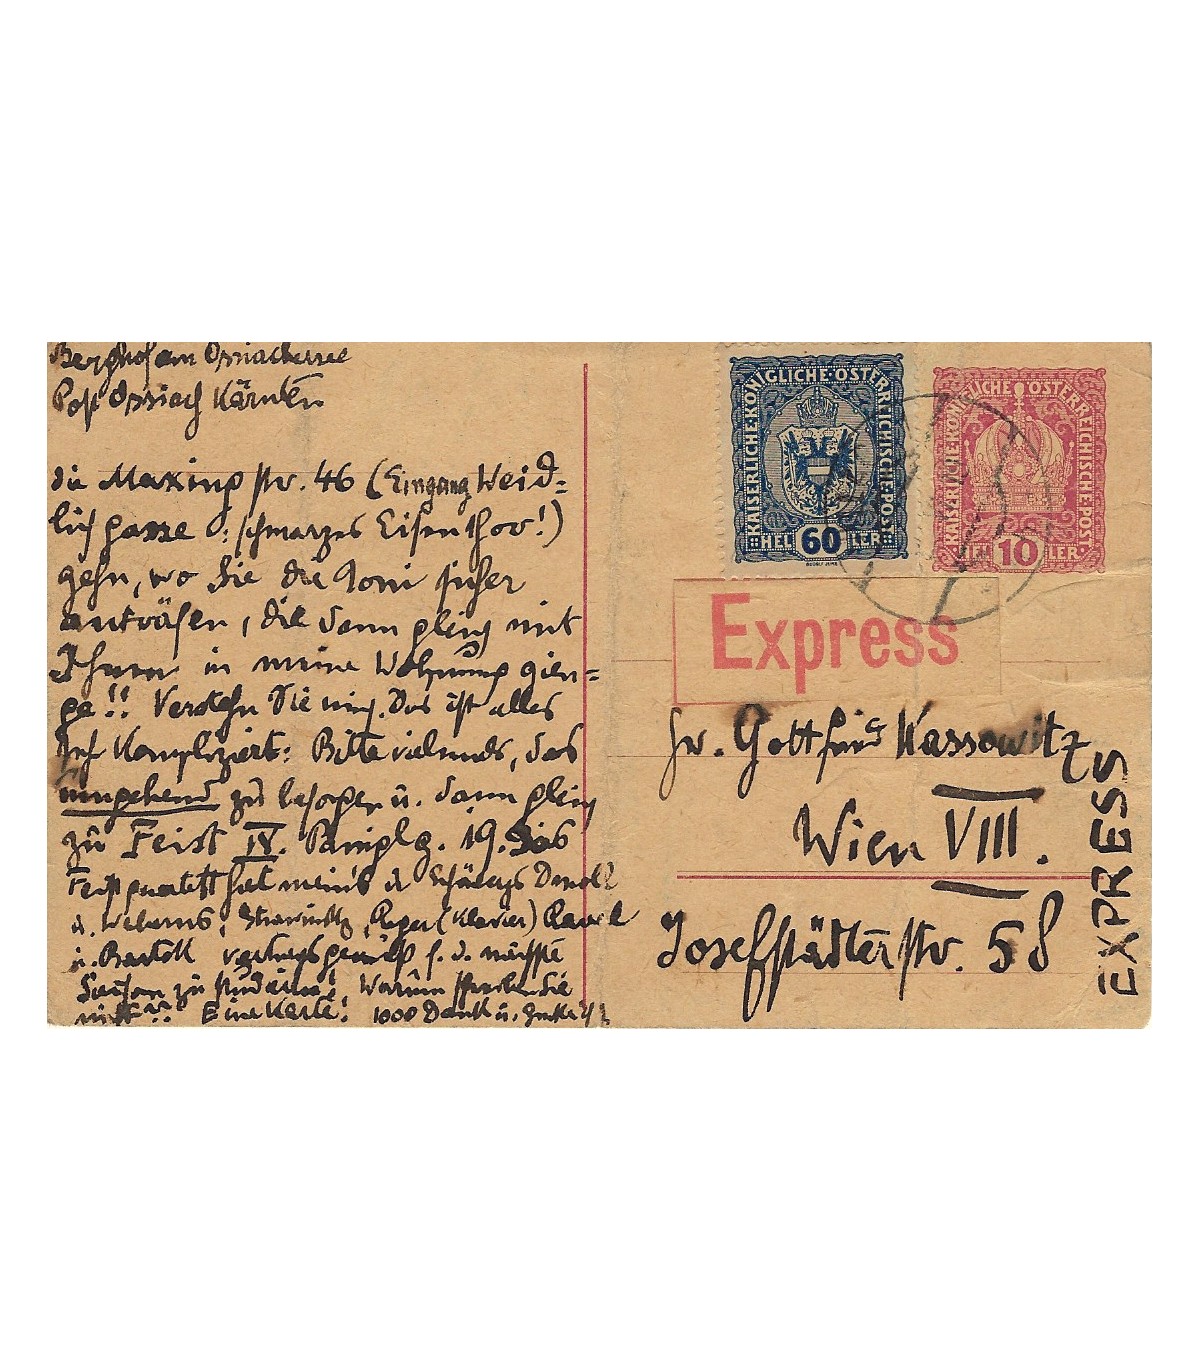 Berghof am Ossiachersee
Post Ossiach Kärnten
die Maxingstr. 46 (Eingang Weid=
lichgasse schwarzes Eisenthor!)
gehn, wo Sie die Toni sicher
anträfen, die dann gleich mit
Ihnen in meine Wohnung gien=
ge!! Verstehn Sie mich. Das ist alles
sehr kompliziert: Bitte vielmals, das
umgehend zu besorgen u. dann gleich
zu Feist IV. Pamiglg. 19. Das
Feistquartett hat meines
u. Weberns, Strawinsky, Reger (Klavier) Ravel
u. Bartok f. d. nächste
Saison zu studieren! Warum schreiben Sie
nicht?? Eine Karte! 1000 Dank u.
KAISERLICHE·KÖNIGLICHE·ÖSTERREICHISCHE·POST
HEL 60 LER
RUDOLF JUNK
KAISERLICHE·KÖNIGLICHE·ÖSTERREICHISCHE·POST
HEL 10 LER
Express
Hr. Gottfried Kassowitz
Wien VIII.
Josefstädterstr. 58
EXPRESS